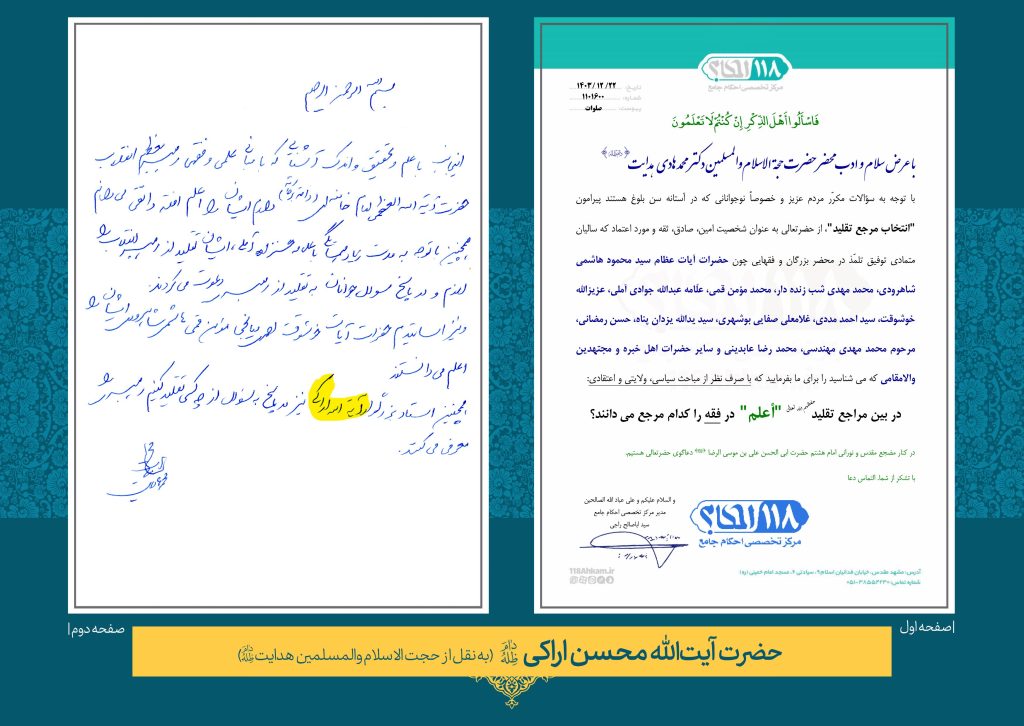 ۱۱۸ احکام
مرکز تخصصی احکام جامع
تاریخ: ۱۴۰۳/۱۲/۲۲
شماره: ۱۱۰۱۶۰۰
پیوست: صلوات
فَاسأَلُوا أَهلَ الذِّکرِ إِن کُنتُم لَا تَعلَمُونَ
با عرض سلام و ادب محضر حضرت حجة الاسلام والمسلمین دکتر محمد هادی هدایت
با توجه به سؤالات مکرّر مردم عزیز و خصوصاً نوجوانانی که در آستانه سن بلوغ هستند پیرامون
"انتخاب مرجع تقلید"، از حضرتعالی به عنوان شخصیت امین، صادق، ثقه و مورد اعتماد که سالیان
متمادی توفیق تلمّذ در محضر بزرگان و فقهایی چون حضرات آیات عظام سید محمود هاشمی
شاهرودی، محمد مهدی شب زنده دار، محمد مؤمن قمی، علّامه عبدالله جوادی آملی، عزیزالله
خوشوقت، سید احمد مددی، غلامعلی صفایی بوشهری، سید یدالله یزدان پناه، حسن رمضانی،
مرحوم محمد مهدی مهندسی، محمد رضا عابدینی و سایر حضرات اهل خبره و مجتهدین
والامقامی که می شناسید را برای ما بفرمایید که با صرف نظر از مباحث سیاسی، ولایتی و اعتقادی:
در بین مراجع تقلید "أعلم" در فقه را کدام مرجع می دانند؟
در کنار مضجع مقدس و نورانی امام هشتم حضرت ابی الحسن علی بن موسی الرضا دعاگوی حضرتعالی هستیم.
با تشکر از شما، التماس دعا
و السلام علیکم و علی عباد الله الصالحین
مدیر مرکز تخصصی احکام جامع
سید اباصالح راجی
۱۱۸ احکام
مرکز تخصصی احکام جامع
118Ahkam.ir
آدرس: مشهد مقدس، خیابان فدائیان اسلام ۹، سیادتی ۶، مسجد امام خمینی (ره)
شماره تماس: ۳۸۵۵۲۲۳۰-۰۵۱
|صفحه اول
بسم الله الرحمن الرحیم
اینجانب با علم و تحقیق و اندک آشنایی که با مبانی علمی و فقهی رهبر معظم انقلاب
حضرت آیة الله العظمی امام خامنه ای دارم ایشان را اعلم افقه و اتقی می دانم
همچنین با توجه به مدت زیاد همسایگی با علامه حسن زاده آملی، ایشان تقلید از رهبر انقلاب را
لازم و در پاسخ سوال جوانان به تقلید از رهبری دعوت می کردند.
و نیز اساتیدم حضرات آیات خوشوقت مومن قمی هاشمی شاهرودی ایشان را
اعلم می دانستند
همچنین استاد بزرگوار آیة الله اراکی نیز در پاسخ به سوال از چه کسی تقلید کنیم رهبری را
معرفی می کنند.
صفحه دوم|
حضرت آیت‌الله محسن اراکی دام ظله (به نقل از حجت الاسلام والمسلمین هدایت دام ظله)